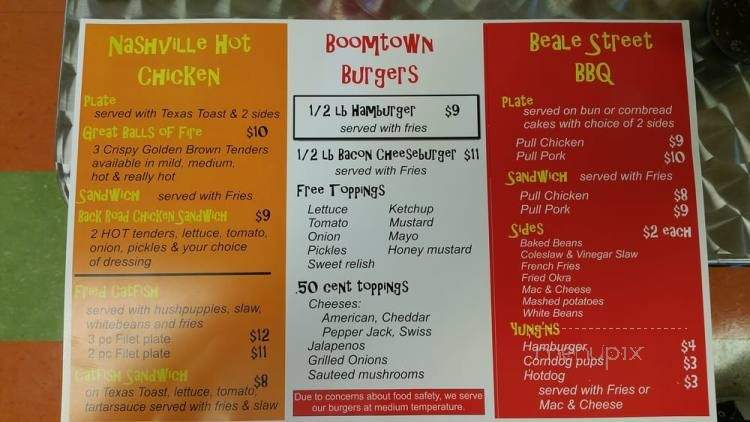 Nashville Hot
Chicken
Plate
served with Texas Toast & 2 sides
Great Balls of Fire $10
3 Crispy Golden Brown Tenders
available in mild, medium,
hot & really hot
Sandwich served with Fries
Back Road Chicken Sandwich $9
2 HOT tenders, lettuce, tomato,
onion, pickles & your choice
of dressing
Fried Catfish
served with hushpuppies, slaw,
whitebeans and fries
3 pc Filet plate $12
2 pc Filet plate $11
Catfish Sandwich $8
on Texas Toast, lettuce, tomato,
tartarsauce served with fries & slaw
Boomtown
Burgers
1/2 Lb Hamburger $9
served with fries
1/2 Lb Bacon Cheeseburger $11
served with Fries
Free Toppings
Lettuce Ketchup
Tomato Mustard
Onion Mayo
Pickles Honey mustard
Sweet relish
.50 cent toppings
Cheeses:
American, Cheddar
Pepper Jack, Swiss
Jalapenos
Grilled Onions
Sauteed mushrooms
Due to concerns about food safety, we serve
our burgers at medium temperature.
Beale Street
BBQ
Plate
served on bun or cornbread
cakes with choice of 2 sides
Pull Chicken $9
Pull Pork $10
Sandwich served with Fries
Pull Chicken $8
Pull Pork $9
Sides $2 each
Baked Beans
Coleslaw & Vinegar Slaw
French Fries
Fried Okra
Mac & Cheese
Mashed potatoes
White Beans
Yung'ns
Hamburger $4
Corndog pups $3
Hotdog $3
served with Fries or
Mac & Cheese
menupix